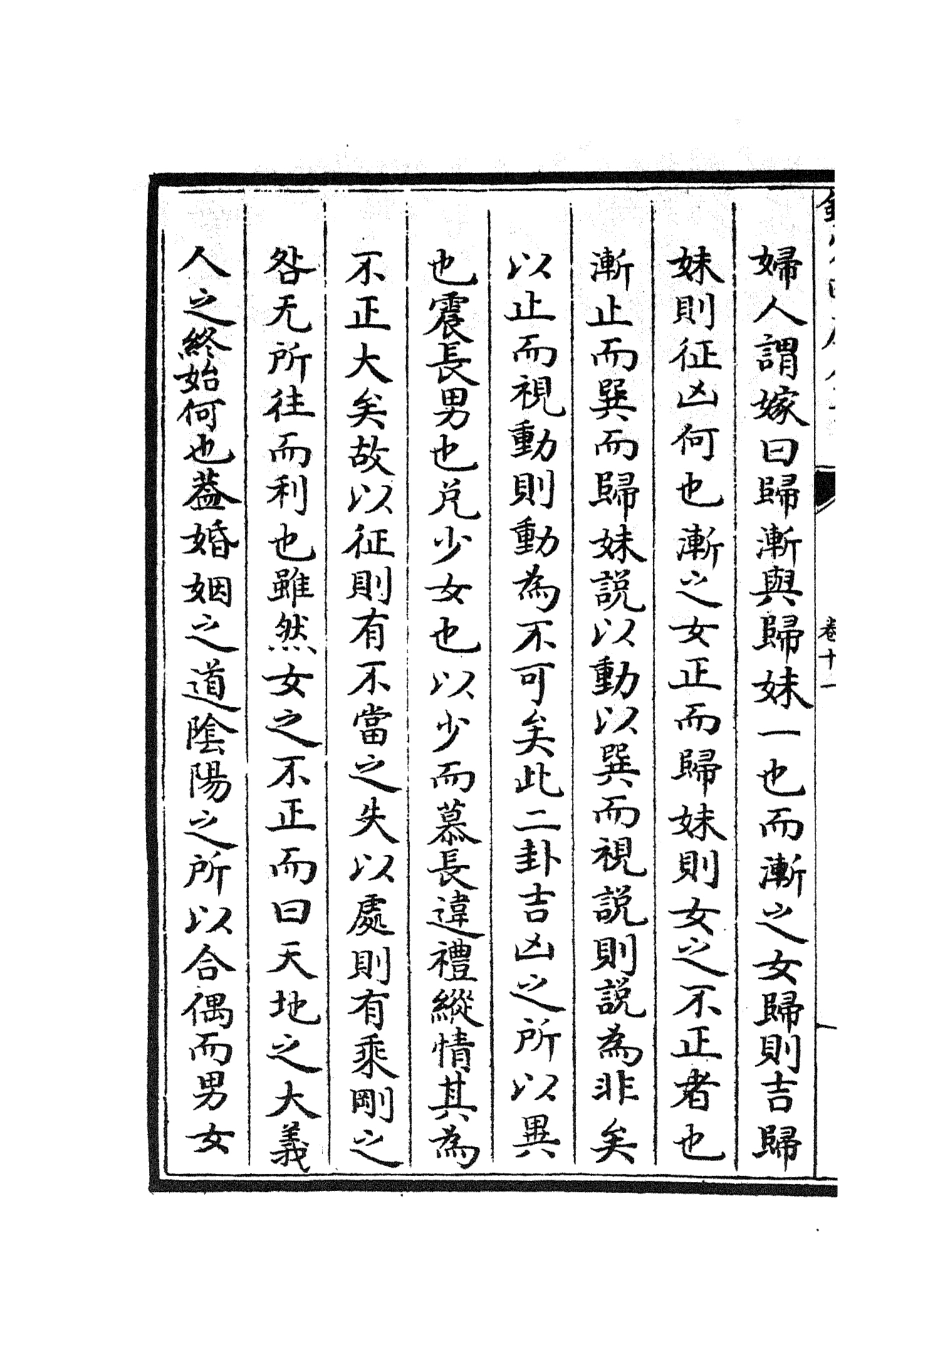 卷十一
婦人謂嫁曰歸漸與歸妹一也而漸之女歸則吉歸
妹則征凶何也漸之女正而歸妹則女之不正者也
漸止而巽而歸妹説以動以巽而視説則説為非矣
以止而視動則動為不可矣此二卦吉凶之所以異
也震長男也兑少女也以少而慕長違禮縱情其為
不正大矣故以征則有不當之失以處則有乘剛之
咎无所往而利也雖然女之不正而曰天地之大義
人之終始何也葢婚姻之道陰陽之所以合偶而男女